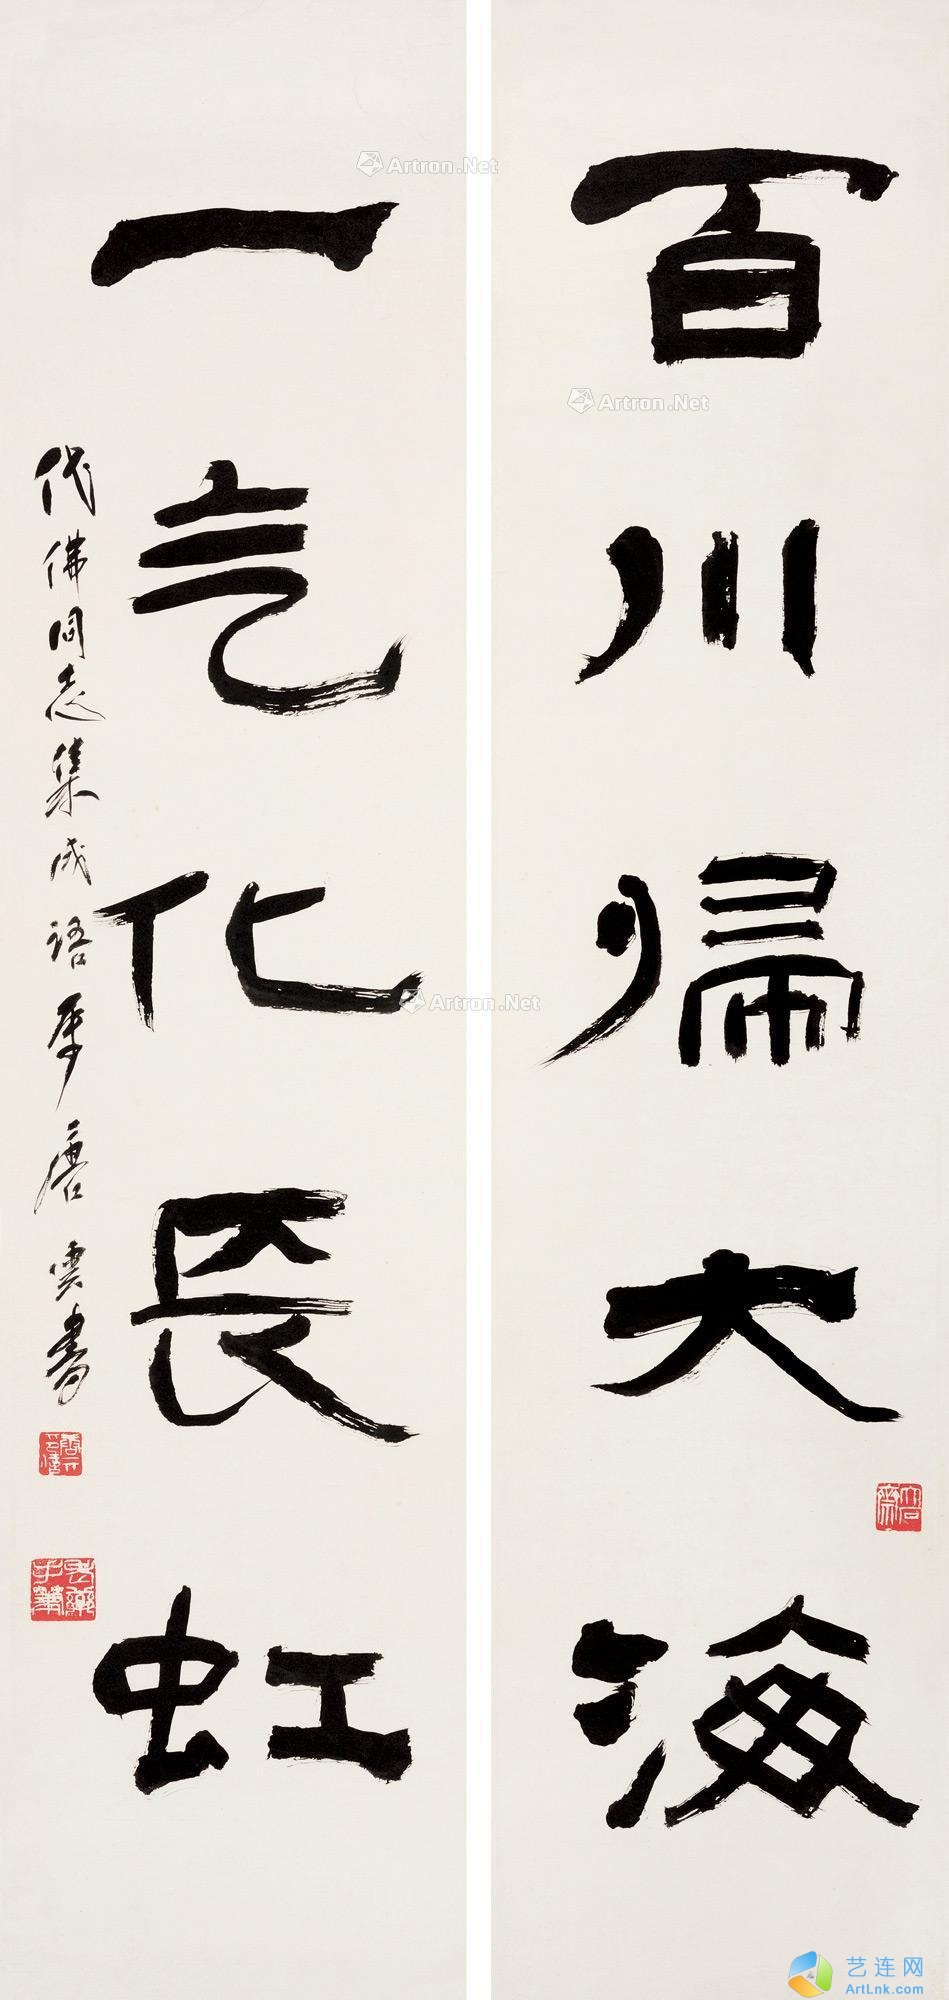 百川歸大海
一气化長虹
代佛同志集成語屬 唐雲書
大石齋
老藥手筆
Artron.Net
Artron.Net
Artron.Net
艺连网
ArtLnk.com